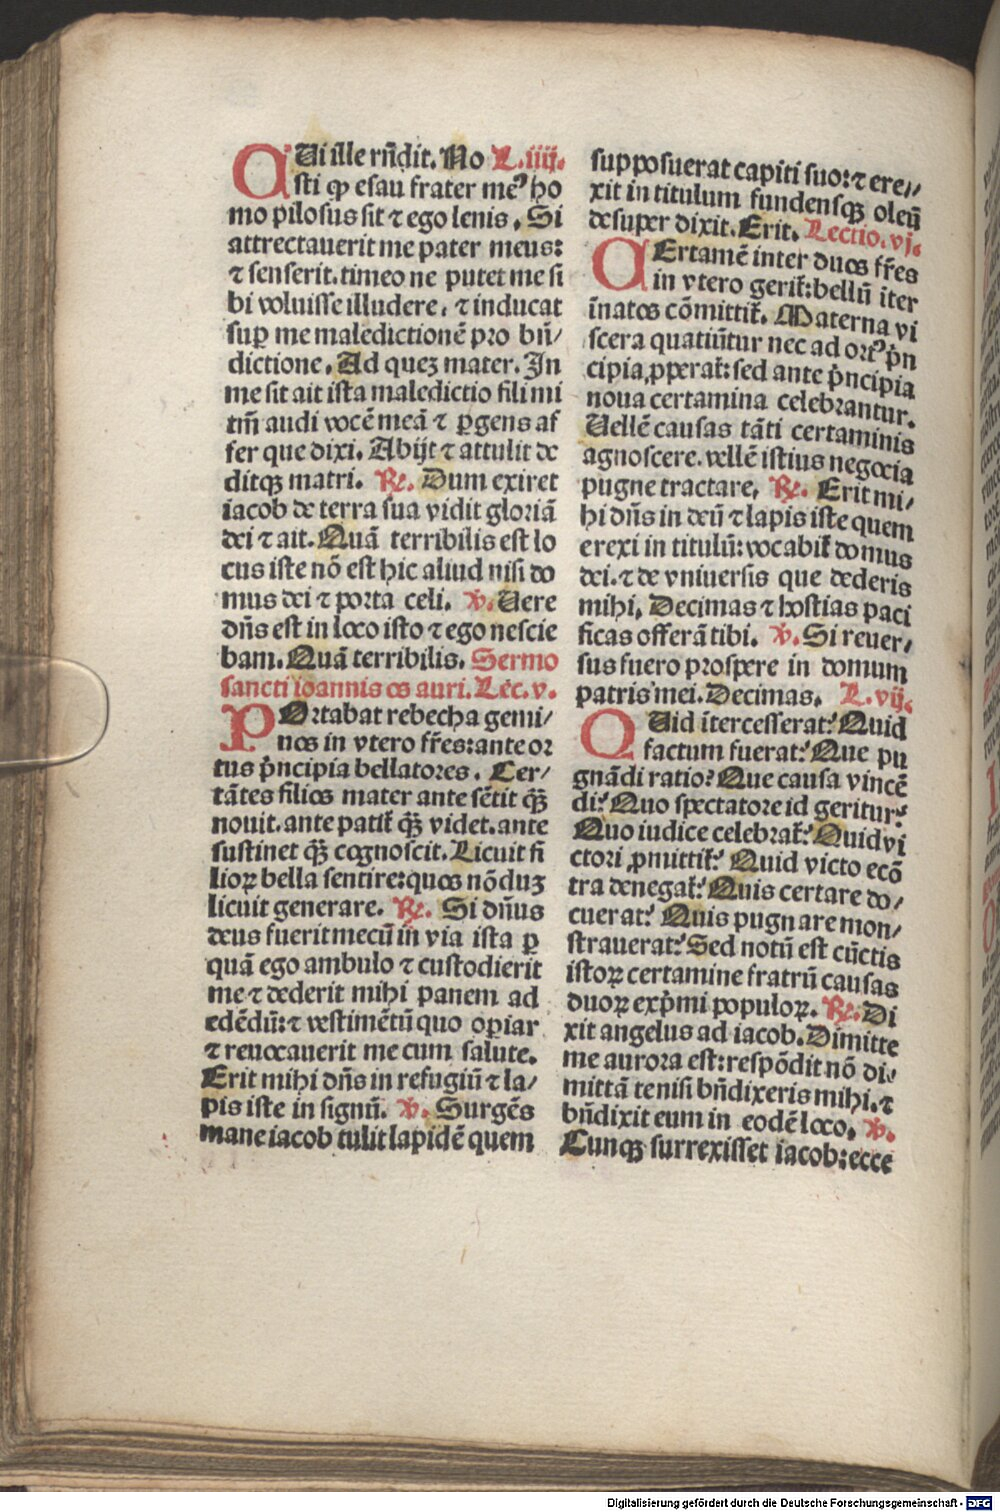 CUi ille rñdit. No L.iiij.
sti qꝙ esau frater me⁹ ho
mo pilosus sit ⁊ ego lenis. Si
attrectauerit me pater meus:
⁊ senserit. timeo ne putet me si
bi voluisse illudere. ⁊ inducat
suꝑ me maledictionē pro bñ/
dictione. Ad quez mater. In
me sit ait ista maledictio fili mi
tm̄ audi vocē meā ⁊ ꝑgens af
fer que dixi. Abijt ⁊ attulit de
ditqꝫ matri. ℞. Dum exiret
iacob de terra sua vidit gloriā
dei ⁊ ait. Quā terribilis est lo
cus iste nō est hic aliud nisi do
mus dei ⁊ porta celi. ℣. Uere
dñs est in loco isto ⁊ ego nescie
bam. Quā terribilis. Sermo
sancti ioannis os auri. Lec. v.
POrtabat rebecha gemi/
nos in vtero fr̄es: ante or
tus p̄ncipia bellatores. Cer/
tātes filios mater ante sētit qꝫ̄
nouit. ante patit̄ qꝫ̄ videt. ante
sustinet qꝫ̄ cognoscit. Licuit fi
lioꝝ bella sentire: quos nō duꝫ
licuit generare. ℞. Si dñus
deus fuerit mecū in via ista ꝑ
quā ego ambulo ⁊ custodierit
me ⁊ dederit mihi panem ad
edēdū: ⁊ vestimētū quo oꝑiar
⁊ reuocauerit me cum salute.
Erit mihi dñs in refugiū ⁊ la/
pis iste in signū. ℣. Surgēs
mane iacob tulit lapidē quem
supposuerat capiti suo: ⁊ ere//
xit in titulum fundensqꝫ oleū
desuper dixit. Erit. Lectio. vj.
CErtamē inter duos fr̄es
in vtero gerit̄: bellū īter
īnatos cōmittit̄. Materna vi
scera quatiūtur nec ad ort⁹ p̄n
cipia ꝓperat̄: sed ante p̄ncipia
noua certamina celebrantur.
Uellē causas tāti certaminis
agnoscere. vellē istius negocia
pugne tractare. ℞. Erit mi/
hi dñs in deū ⁊ lapis iste quem
erexi in titulū: vocabit̄ domus
dei. ⁊ de vniuersis que dederis
mihi. Decimas ⁊ hostias paci
ficas offerā tibi. ℣. Si reuer/
sus fuero prospere in domum
patris mei. Decimas. L. vij.
QUid ītercesserat? Quid
factum fuerat? Que pu
gnādi ratio? Que causa vincē
di? Quo spectatore id geritur?
Quo iudice celebrat̄? Quid vi
ctori ꝓmittit̄? Quid victo ecō
tra denegat̄? Quis certare do/
cuerat? Quis pugnare mon/
strauerat? Sed notū est cūctis
istoꝝ certamine fratrū causas
duoꝝ exp̄mi populoꝝ. ℞. Di
xit angelus ad iacob. Dimitte
me aurora est: respōdit nō di/
mittā te nisi bñdixeris mihi. ⁊
bñdixit eum in eodē loco. ℣.
Cunqꝫ surrexisset iacob: ecce
Digitalisierung gefördert durch die Deutsche Forschungsgemeinschaft - DFG